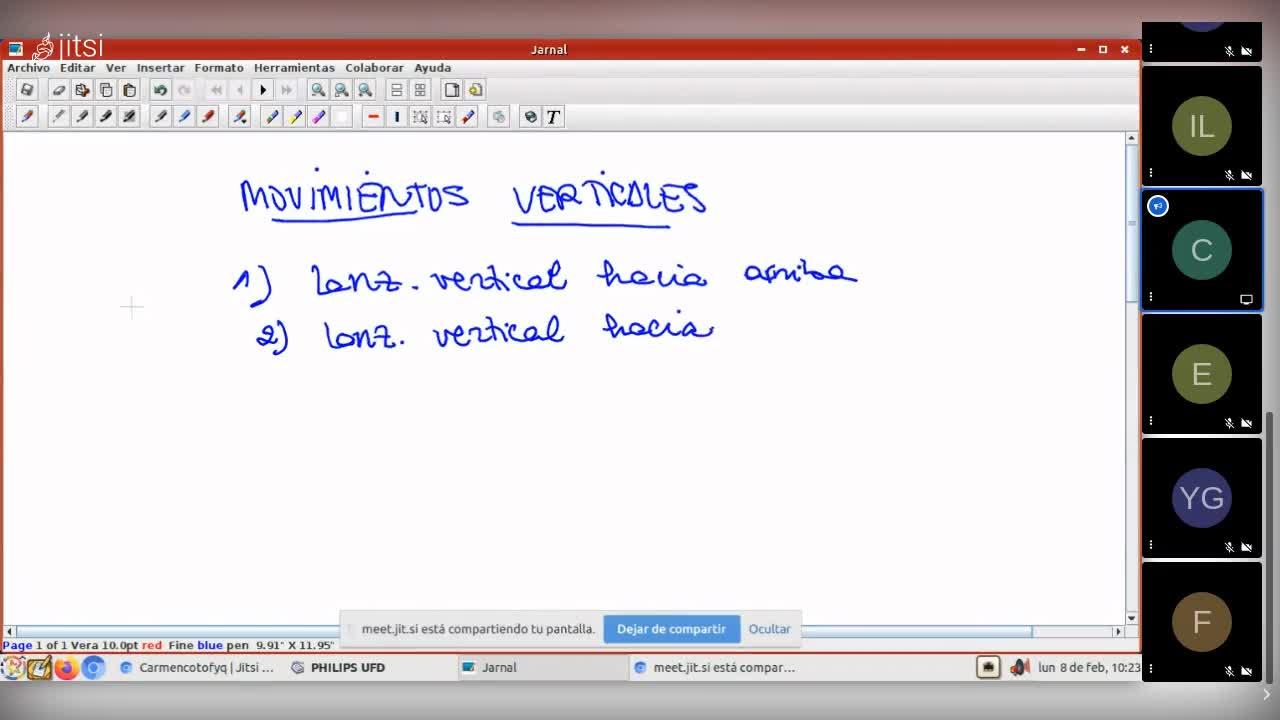 jitsi
Jarnal
Archivo Editar Ver Insertar Formato Herramientas Colaborar Ayuda
T
MOVIMIENTOS VERTICALES
1) lanz. vertical hacia arriba
2) lanz. vertical hacia
IL
C
E
YG
F
meet.jit.si está compartiendo tu pantalla. Dejar de compartir Ocultar
Page 1 of 1 Vera 10.0pt red Fine blue pen 9.91" X 11.95"
Carmencotofyq | Jitsi ... PHILIPS UFD Jarnal meet.jit.si está compar... lun 8 de feb, 10:23